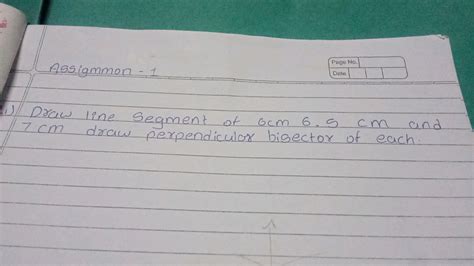 Page No.
Date
Assigmmon - 1
1) Draw line segment of 6cm 6.5 cm and
7 cm draw perpendicular bisector of each.